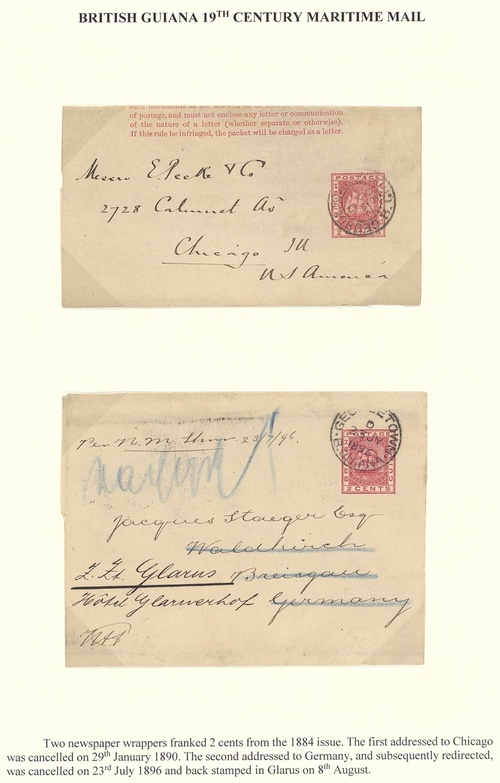 BRITISH GUIANA 19TH CENTURY MARITIME MAIL
of postage, and must not enclose any letter or communication
of the nature of a letter (whether separate or otherwise).
If this rule be infringed, the packet will be charged as a letter.
Messrs E Peeke & Co
2728 Calumet Av
Chicago Ill
U S America
POSTAGE
GEORGETOWN
D
1896
GUIANA
2 CENTS
Per R. M. 23/7/96.
Jacques Staeger Esq
Waldkirch
Z. Zt. Glarus Breisgau
Hôtel Glarnerhof Germany
Two newspaper wrappers franked 2 cents from the 1884 issue. The first addressed to Chicago
was cancelled on 29th January 1890. The second addressed to Germany, and subsequently redirected,
was cancelled on 23rd July 1896 and back stamped in Glarus on 8th August.